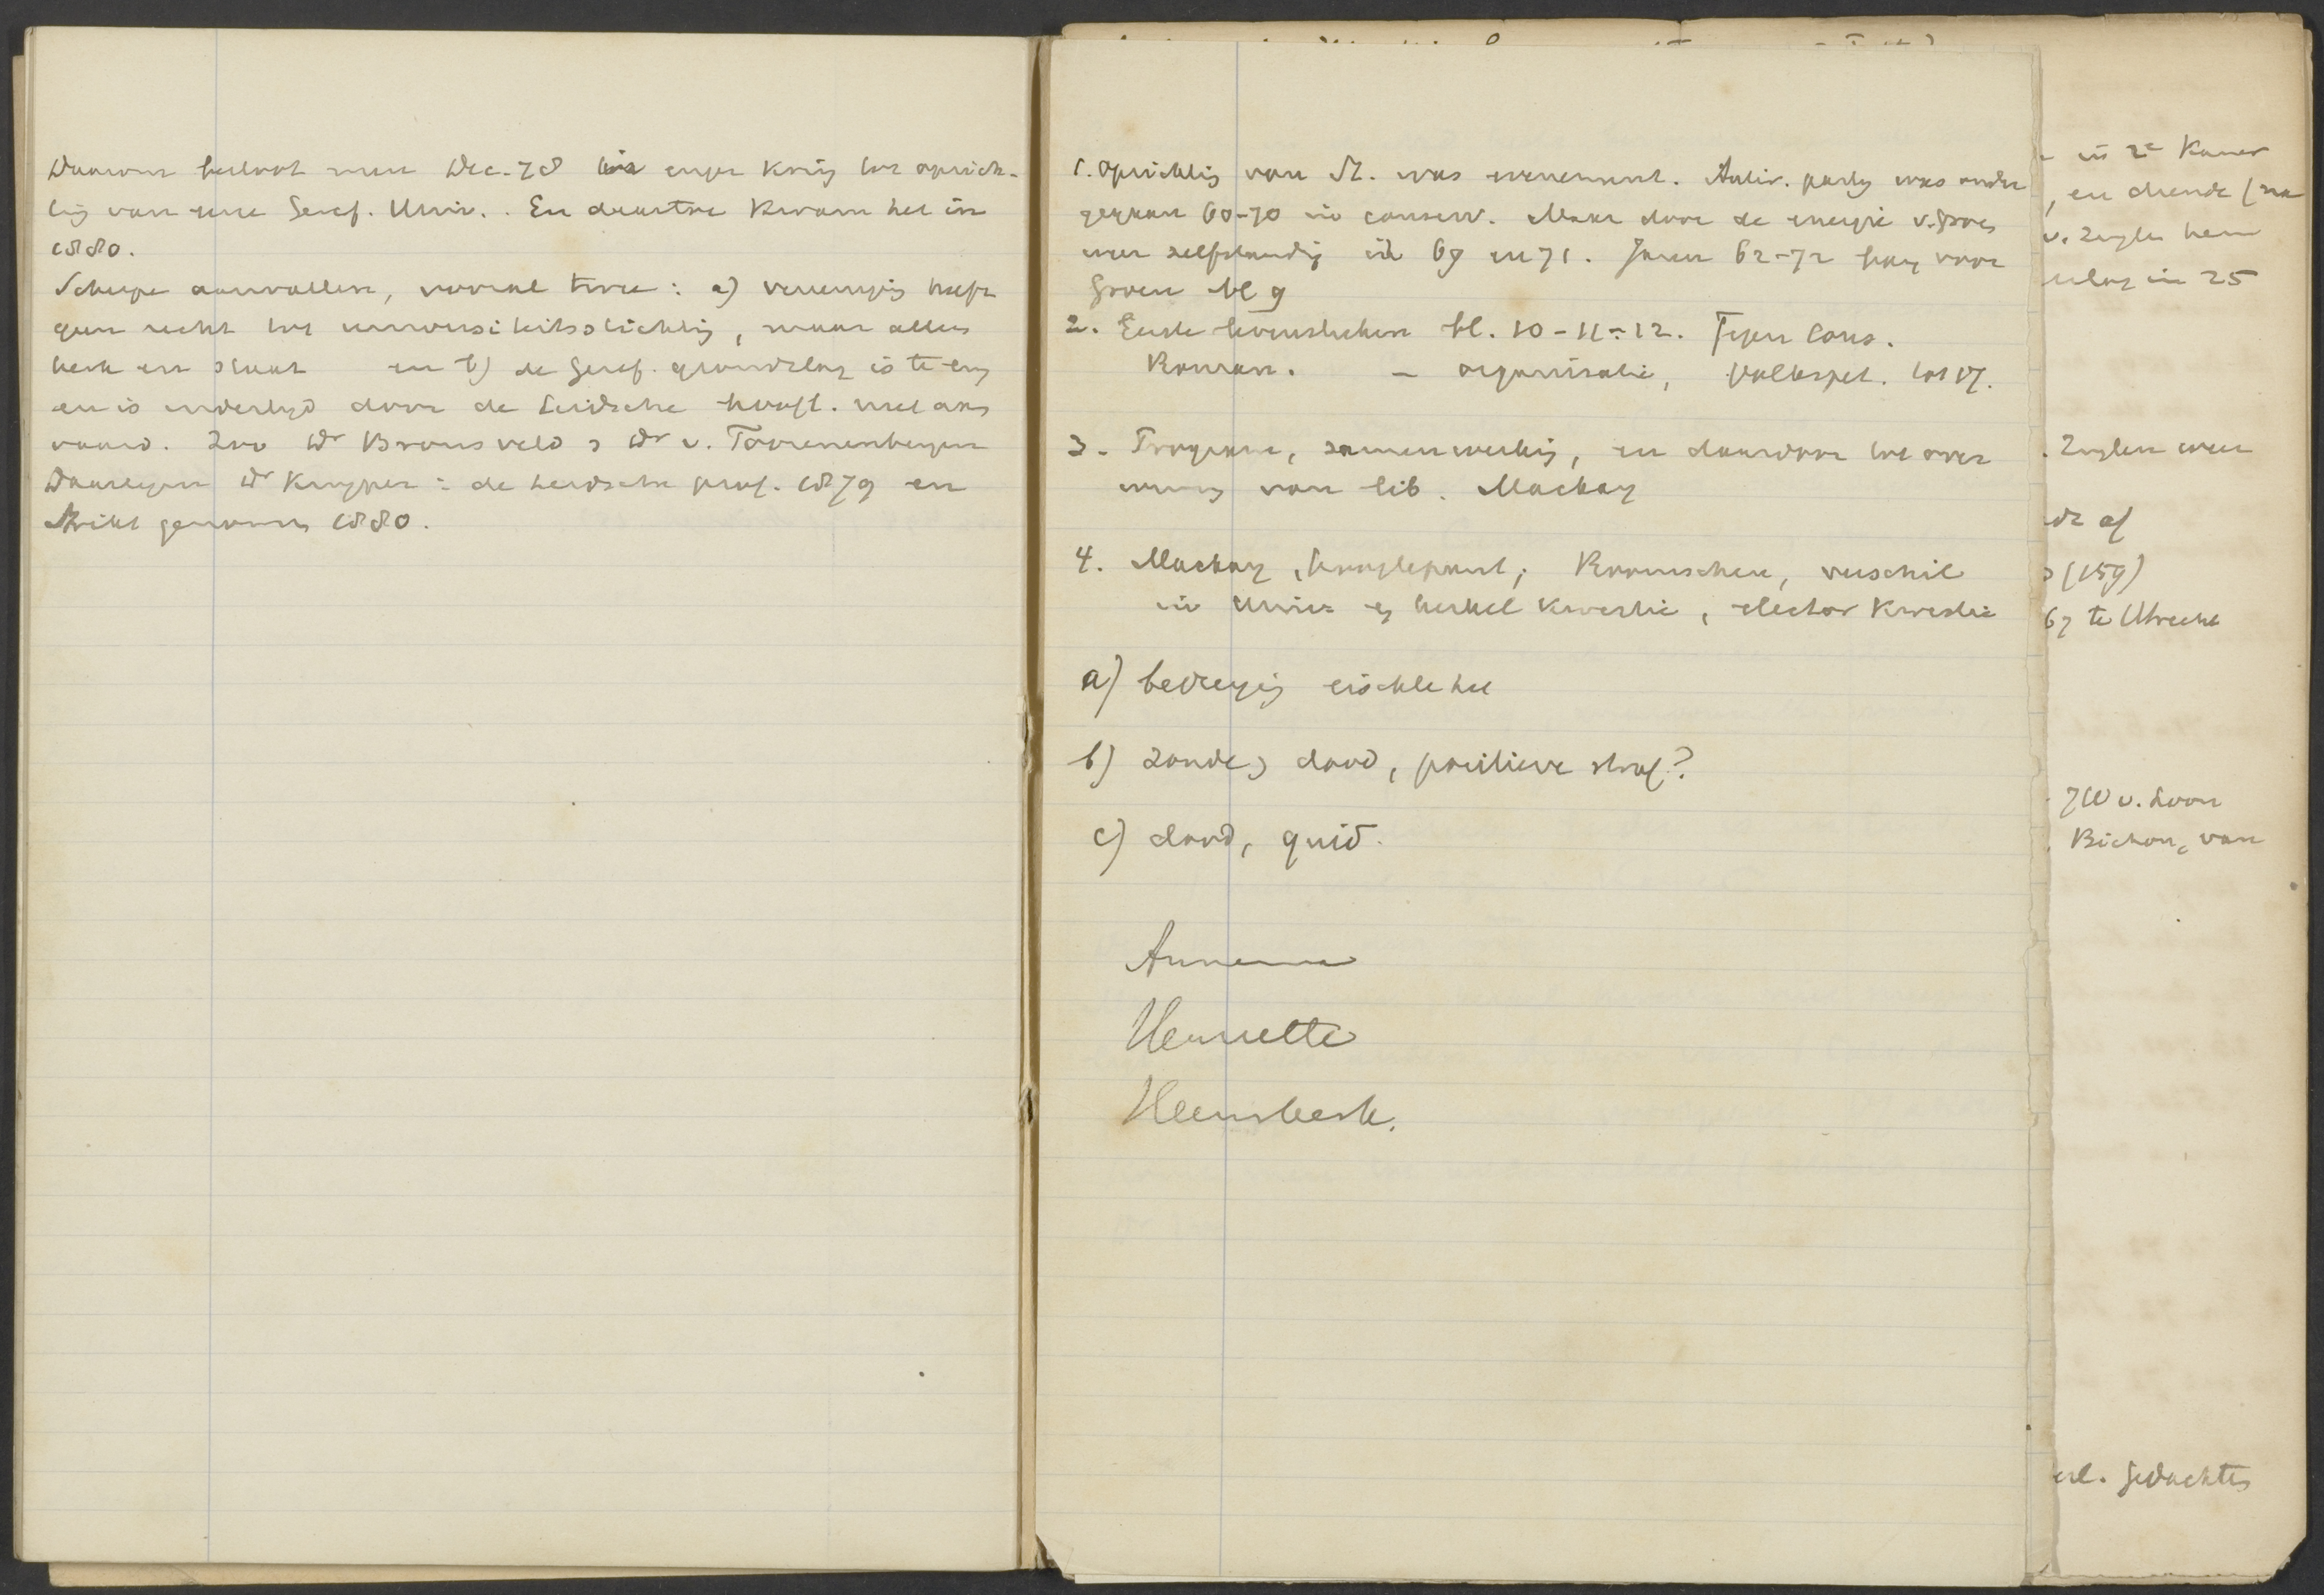 Daarom besloot men Dec. 78 in enger kring tot oprich-
ting van eene Geref. Univ.. En daartoe kwam het in
1880.
Scherpe aanvallen, vooral twee: a) vereeniging heeft
geen recht tot universiteitsstichting, maar alleen
kerk en staat en b) de Geref. grondslag is te eng
en is indertijd door de Leidsche hoogl. niet aan
vaard. Zoo Dr Bronsveld & Dr v. Toorenenbergen
Daartegen Dr Kuyper: de Leidsche prof. 1879 en
Strikt genomen 1880.
1. Oprichting van St. was evenement. Antir. partij was onder
gegaan 60-70 in conserv. Maar door de energie v. Groen
weer zelfstandig in 69 en 71. Jaren 62-72 bang voor
Groen bl 9
2. Eerste levensteeken bl. 10-11-12. Tegen Cons.
Roman. - organisatie, volkspet. tot 17.
3. Program, samenwerking, en daardoor tot over
winning van lib. Mackay
4. Mackay, hoogtepunt; Roomschen, verschil
in Univ. en kerkel kwestie, elector kwestie
a) bedreiging eischte het
b) zonde & dood, positieve straf?
c) dood, quid.
Annema
Henriette
Heemskerk.
in 2e Kamer
, en diende (na
v. Zuylen hem
in 25
. Zuylen weer
af
(159)
67 te Utrecht
JW v. Loon
Bichon, van
Gedachten